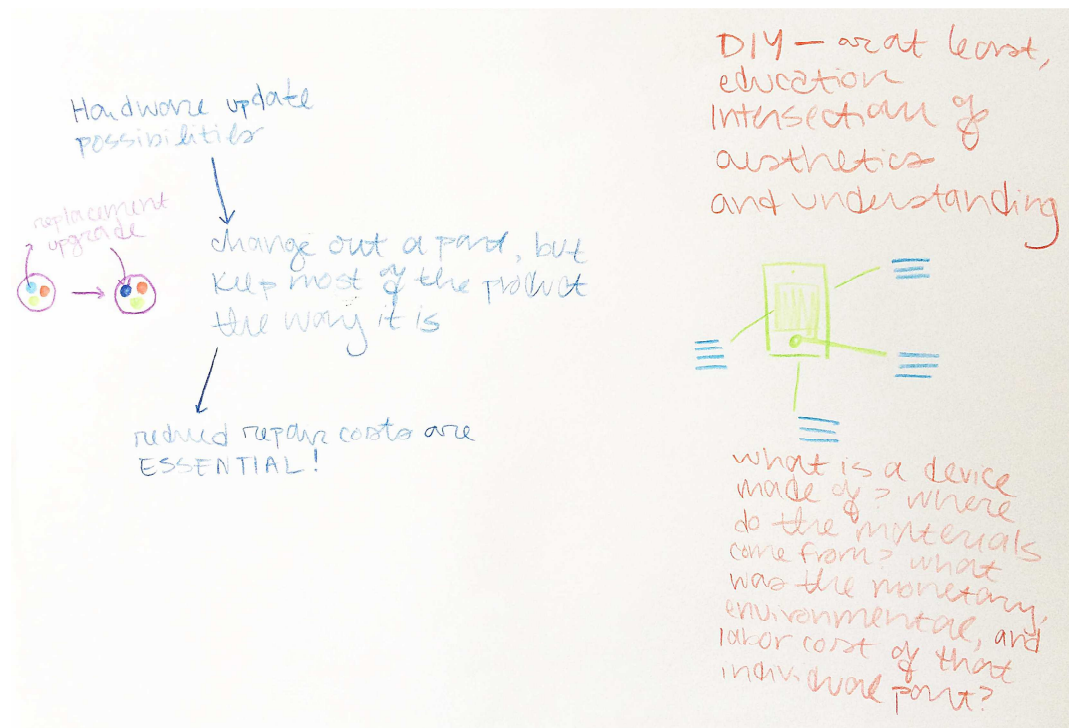 Hardware update
possibilities
replacement
upgrade
change out a part, but
keep most of the product
the way it is
reduced repair costs are
ESSENTIAL!
DIY – or at least,
education
Intersection of
aesthetics
and understanding
what is a device
made of? where
do the materials
come from? what
was the monetary,
environmental, and
labor cost of that
individual part?